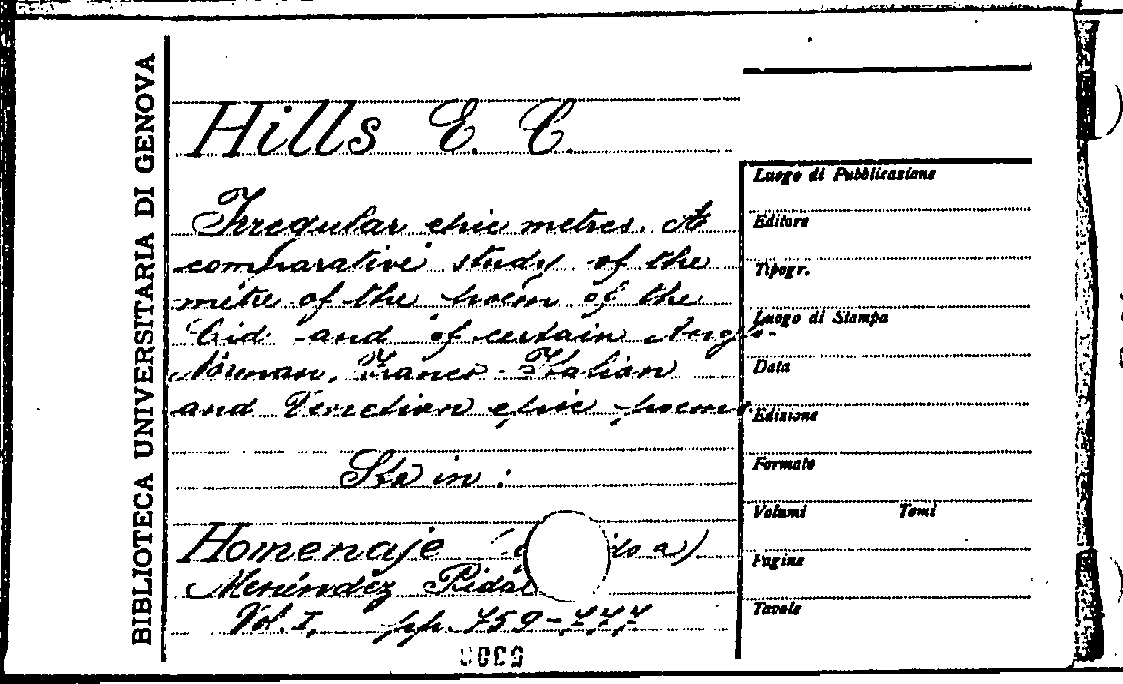 BIBLIOTECA UNIVERSITARIA DI GENOVA
Hills E. C.
Irregular epic metres. A
comparative study of the
metre of the poem of the
Cid and of certain Anglo-
Norman, Franco-Italian
and Venetian epic poems.
Sta in:
Homenaje
Menéndez Pidal
Vol. I, pp. 759-777
Luogo di Pubblicazione
Editore
Tipogr.
Luogo di Stampa
Data
Edizione
Formato
Volumi Tomi
Pagine
Tavole